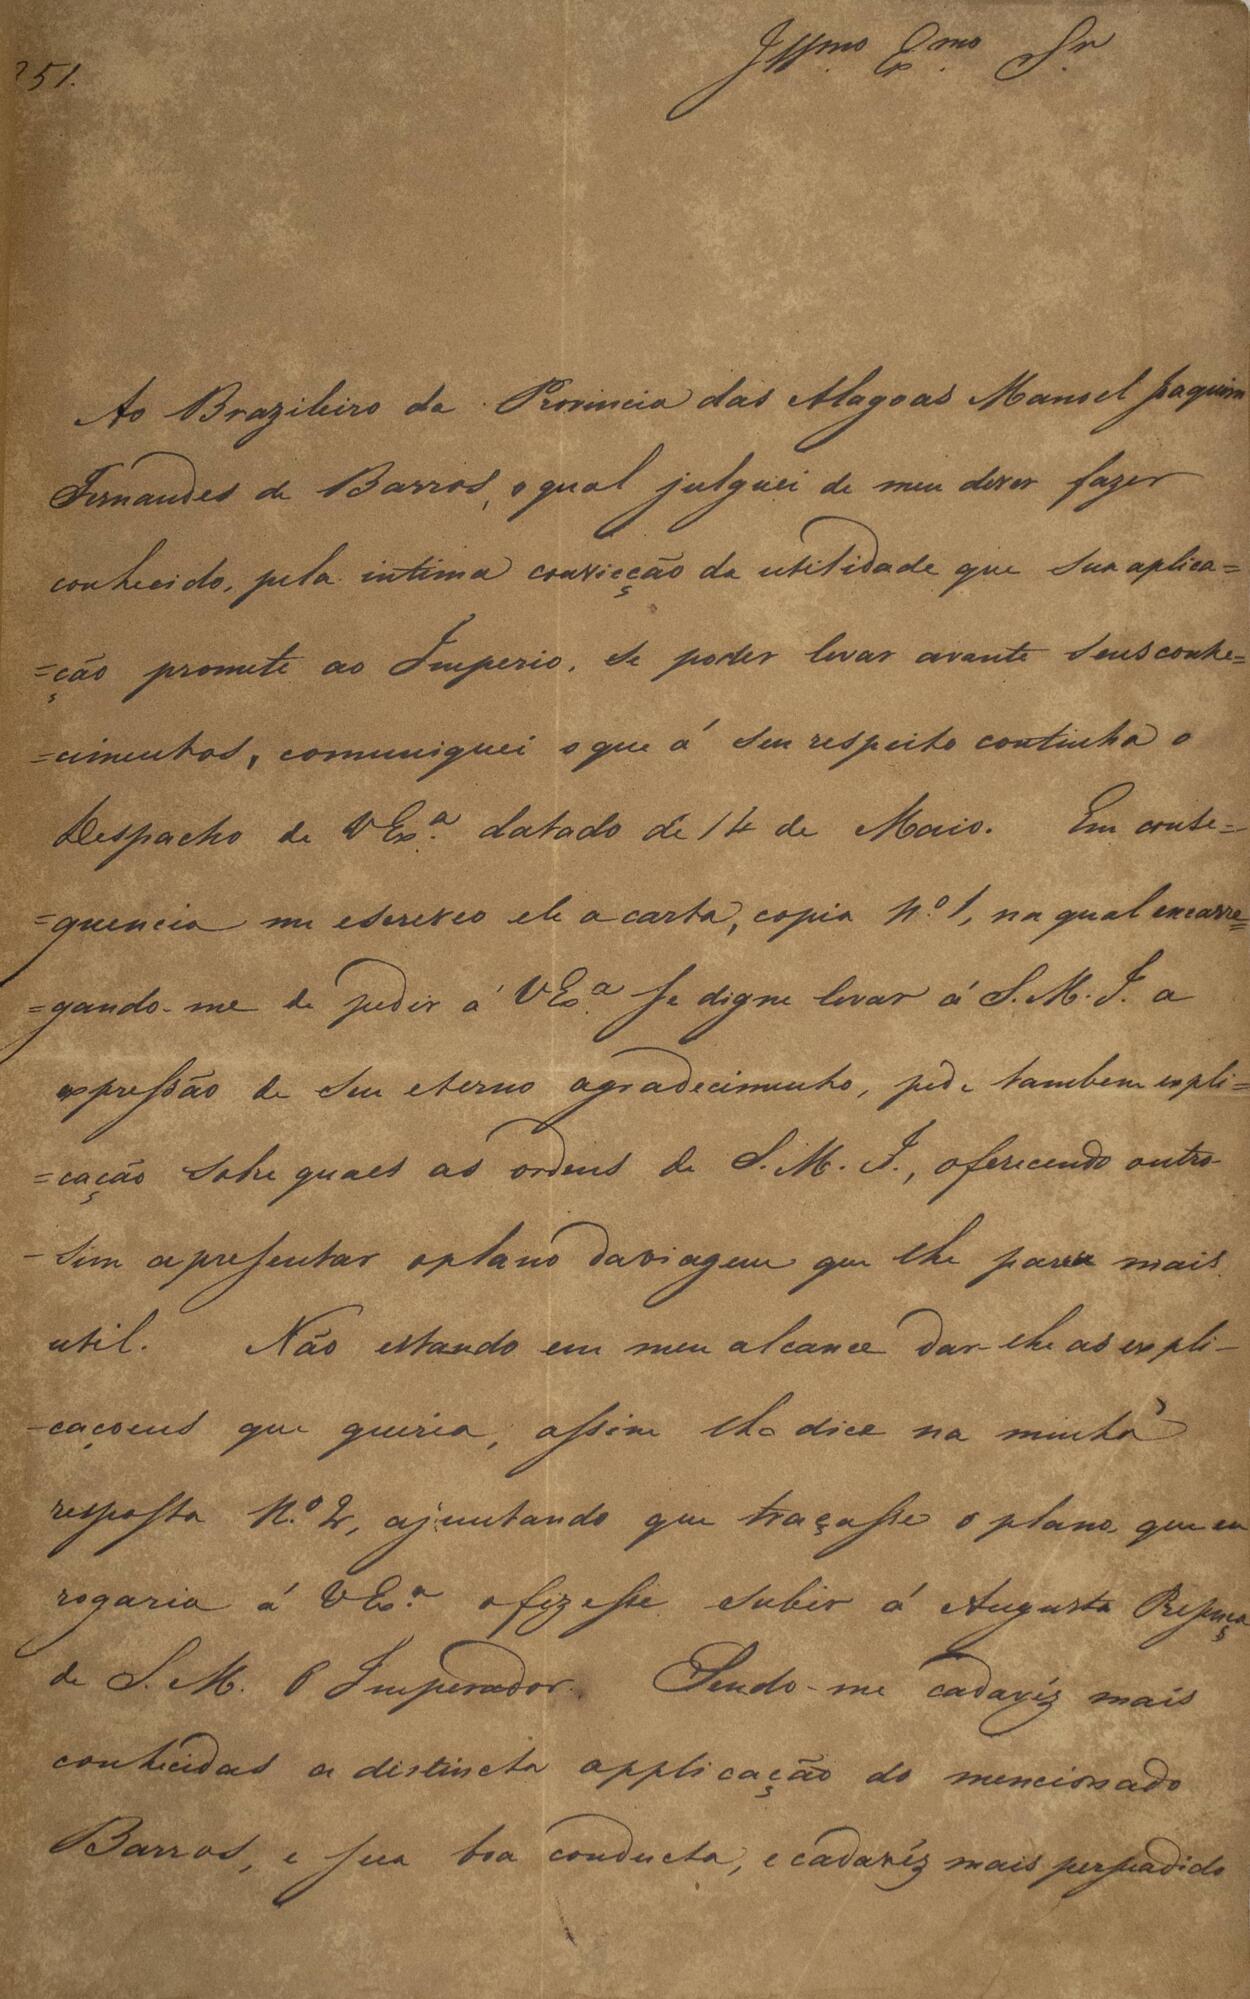 Illmo Exmo Snr
251.
Ao Brazileiro da Provincia das Alagoas Manoel Joaquim
Fernandes de Barros, o qual julguei de meu dever fazer
conhecido, pela intima convicção da utilidade que sua aplica=
=ção promete ao Imperio, se poder levar avante seus conhe=
=cimentos, comuniquei o que á seu respeito continha o
Despacho de VExa. datado de 14 de Maio. Em conse=
=quencia me escreveo ele a carta, copia N.º 1, na qual encarre=
=gando-me de pedir á VExa. se digne levar á S.M.I. a
expressão de seu eterno agradecimento, pede tambem expli=
=cação sobre quaes as ordens de S.M.I., oferecendo outro-
-sim apresentar o plano da viagem que lhe parecer mais
util. Não estando em meu alcance dar-lhe as expli-
-caçoens que queria, assim lho dice na minha
resposta N.º 2, ajuntando que traçasse o plano, que eu
rogaria á VExa. o fizesse subir á Augusta Presença
de S.M. O Imperador. Sendo-me cada véz mais
conhecidas a distincta applicação do mencionado
Barros, e sua boa conducta, e cada véz mais persuadido